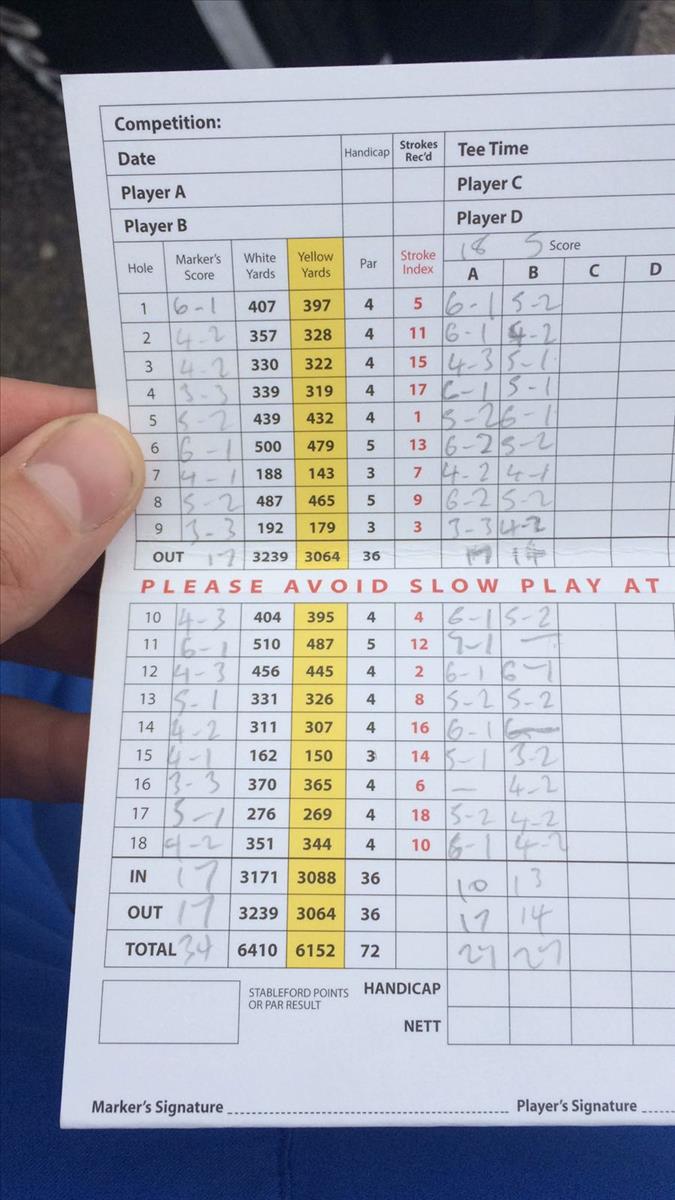 Competition:
Date Handicap Strokes Rec'd Tee Time
Player A Player C
Player B Player D
18 5 Score
Hole Marker's Score White Yards Yellow Yards Par Stroke Index A B C D
1 6-1 407 397 4 5 6-1 5-2
2 4-2 357 328 4 11 6-1 4-2
3 4-2 330 322 4 15 4-3 5-1
4 3-3 339 319 4 17 6-1 5-1
5 5-2 439 432 4 1 5-2 6-1
6 6-1 500 479 5 13 6-2 5-2
7 4-1 188 143 3 7 4-2 4-1
8 5-2 487 465 5 9 6-2 5-2
9 3-3 192 179 3 3 3-3 4-2
OUT 17 3239 3064 36 17 14
PLEASE AVOID SLOW PLAY AT
10 4-3 404 395 4 4 6-1 5-2
11 6-1 510 487 5 12 —
12 4-3 456 445 4 2 6-1 6-1
13 5-1 331 326 4 8 5-2 5-2
14 4-2 311 307 4 16 6-1
15 4-1 162 150 3 14 5-1 3-2
16 3-3 370 365 4 6 — 4-2
17 5-1 276 269 4 18 5-2 4-2
18 4-2 351 344 4 10 6-1 4-2
IN 17 3171 3088 36 10 13
OUT 17 3239 3064 36 17 14
TOTAL 34 6410 6152 72 27 27
STABLEFORD POINTS OR PAR RESULT HANDICAP
NETT
Marker's Signature Player's Signature